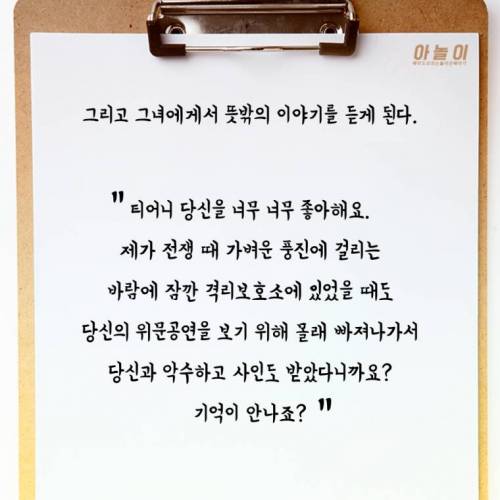 아놀이
그리고 그녀에게서 뜻밖의 이야기를 듣게 된다.
" 티어니 당신을 너무 너무 좋아해요.
제가 전쟁 때 가벼운 풍진에 걸리는
바람에 잠깐 격리보호소에 있었을 때도
당신의 위문공연을 보기 위해 몰래 빠져나가서
당신과 악수하고 사인도 받았다니까요?
기억이 안나죠? "